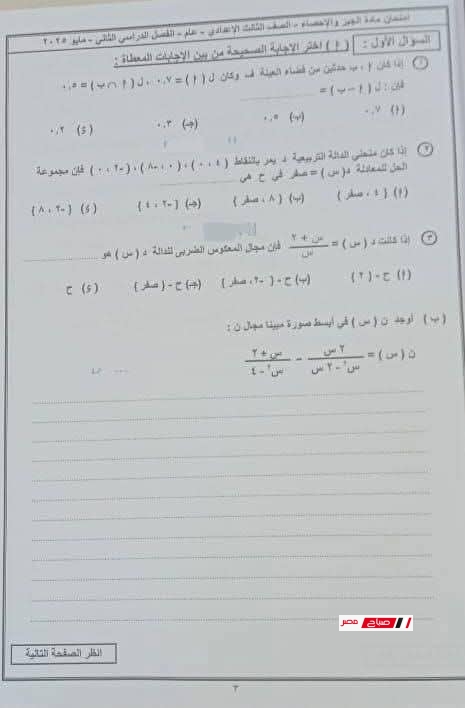 امتحان مادة الجبر والإحصاء - الصف الثالث الإعدادي - عام - الفصل الدراسي الثاني - مايو ٢٠٢٥
السؤال الأول : ( أ ) اختر الإجابة الصحيحة من بين الإجابات المعطاة :
١ إذا كان أ ، ب حدثين من فضاء العينة ف وكان ل ( أ ) = ٠.٧ ، ل ( أ ∩ ب ) = ٠.٥
فإن : ل ( أ - ب ) =
(أ) ٠.٧ (ب) ٠.٥ (جـ) ٠.٣ (د) ٠.٢
٢ إذا كان منحنى الدالة التربيعية د يمر بالنقاط ( ٤ ، ٠ ) ، ( ٠ ، -٨ ) ، ( -٢ ، ٠ ) فإن مجموعة
الحل للمعادلة د( س ) = صفر في ح هي
(أ) { ٤ ، صفر } (ب) { ٨ ، صفر } (جـ) { -٢ ، ٤ } (د) { -٢ ، ٨ }
٣ إذا كانت د ( س ) = س + ٢ / س فإن مجال المعكوس الضربي للدالة د ( س ) هو
(أ) ح - { ٢ } (ب) ح - { -٢ ، صفر } (جـ) ح - { صفر } (د) ح
( ب ) أوجد ن ( س ) في أبسط صورة مبينا مجال ن :
ن ( س ) = ٢ س / س² - ٢ س - س + ٢ / س² - ٤
صباح مصر
انظر الصفحة التالية
٢